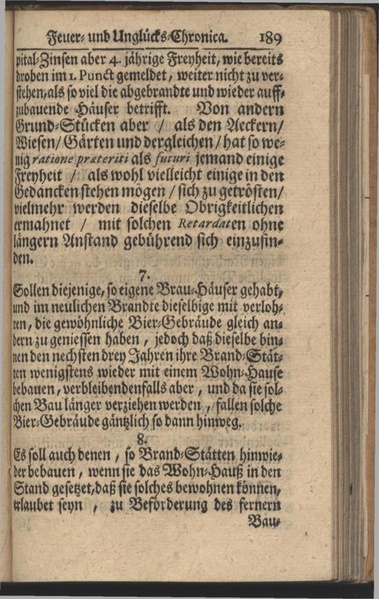 Feuer- und Unglücks-Chronica. 189
pital-Zinsen aber 4. jährige Freyheit, wie bereits
droben im 1. Punct gemeldet, weiter nicht zu ver-
stehen, als so viel die abgebrandte und wieder auff-
zubauende Häuser betrifft. Von andern
Grund-Stücken aber / als den Aeckern/
Wiesen/ Gärten und dergleichen / hat so we-
nig ratione præteriti als futuri jemand einige
Freyheit / als wohl vielleicht einige in den
Gedancken stehen mögen / sich zu getrösten/
vielmehr werden dieselbe Obrigkeitlichen
ermahnet / mit solchen Retardaten ohne
längern Anstand gebührend sich einzufin-
den.
7.
Sollen diejenige, so eigene Brau-Häuser gehabt,
und im neulichen Brandte dieselbige mit verloh-
ren, die gewöhnliche Bier-Gebräude gleich an-
dern zu geniessen haben, jedoch daß dieselbe bin-
nen den nechsten drey Jahren ihre Brand-Stät-
ten wenigstens wieder mit einem Wohn-Hause
bebauen, verbleibendenfalls aber, und da sie sol-
chen Bau länger verziehen werden, fallen solche
Bier-Gebräude gäntzlich so dann hinweg.
8.
Es soll auch denen, so Brand-Stätten hinwie-
der bebauen, wenn sie das Wohn-Hauß in den
Stand gesetzet, daß sie solches bewohnen können,
erlaubet seyn, zu Beförderung des fernern
Bau-